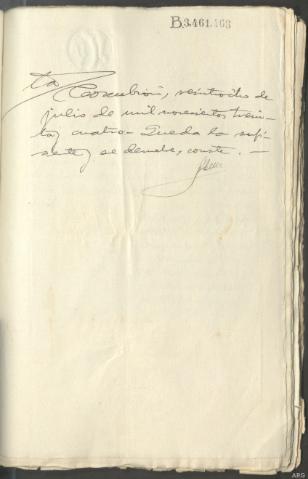 B.3.461.463
ta/ Corcubión, veintiocho de
julio de mil novecientos trein-
ta y cuatro.- Queda la
y se devuelve, conste.-
ARG